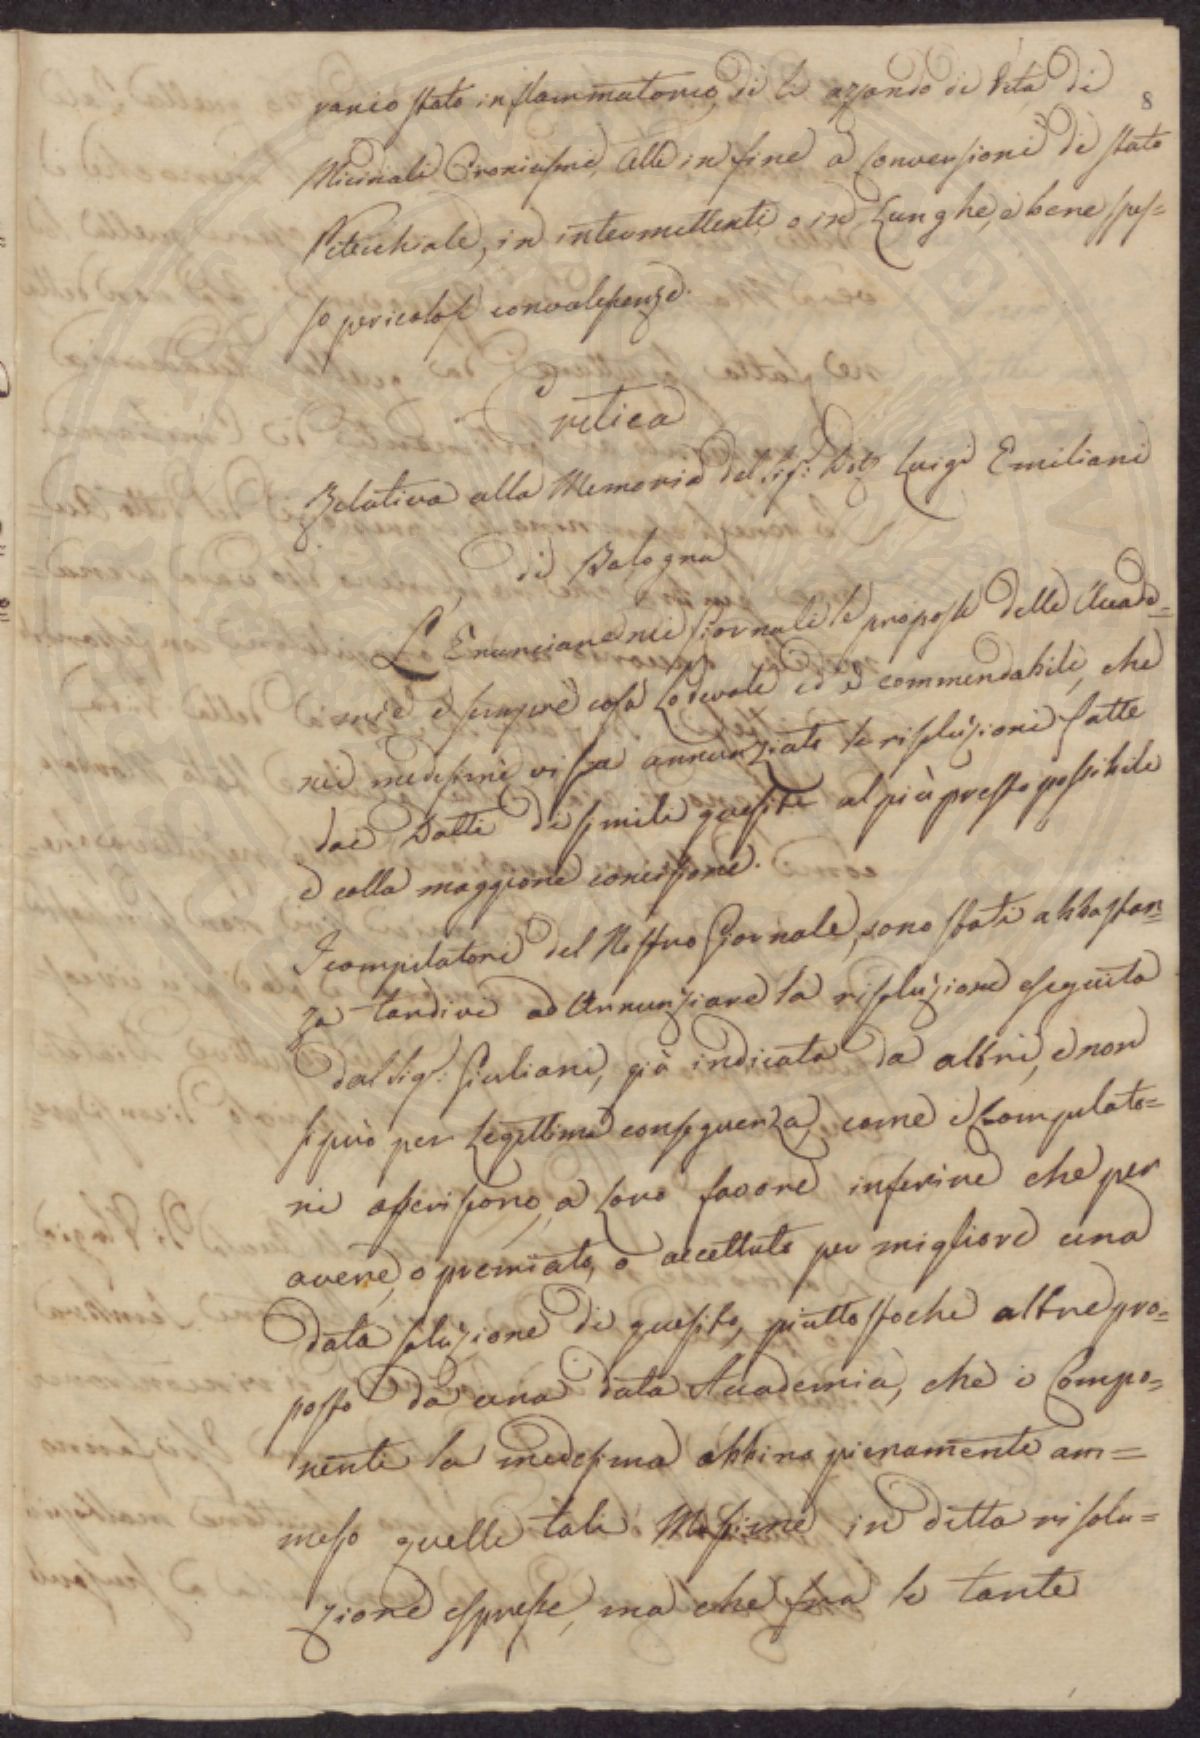 8
raneo stato inflammatorio, di le azando di Vita di
Micinali Cronicismi, alle in fine a conversioni di stato
Petecchiale, in intermittenti o in Lunghe, e bene spes=
so pericolose convalescenze.
Critica
Relativa alla Memoria del Sig: Dott. Luigi Emiliani
di Bologna
L'Enunciare nei Giornali le proposte delle Accade=
mie è sempre cosa Lodevole ed è commendabile, che
nei medesimi vi sia annunziato le risoluzioni fatte
dai Dotti di simili quesiti al più presto possibile
e colla maggiore concisione.
I compilatori del Nostro Giornale, sono stati abbastan=
za tardivi ad Annunziare la risoluzione eseguita
dal Sig: Giuliani, già indicata da altri, e non
si può per Legittima conseguenza, come i Compilato=
ri asseriscono, a Loro favore inferire che per
avere, o premiato, o accettato per migliore una
data soluzione di quesito, piuttostoche altre pro=
posto da una data Accademia, che i Compo=
nenti la medesima abbino pienamente am=
messo quelle tali Massime in detta risolu=
zione espresse, ma che fra le tante